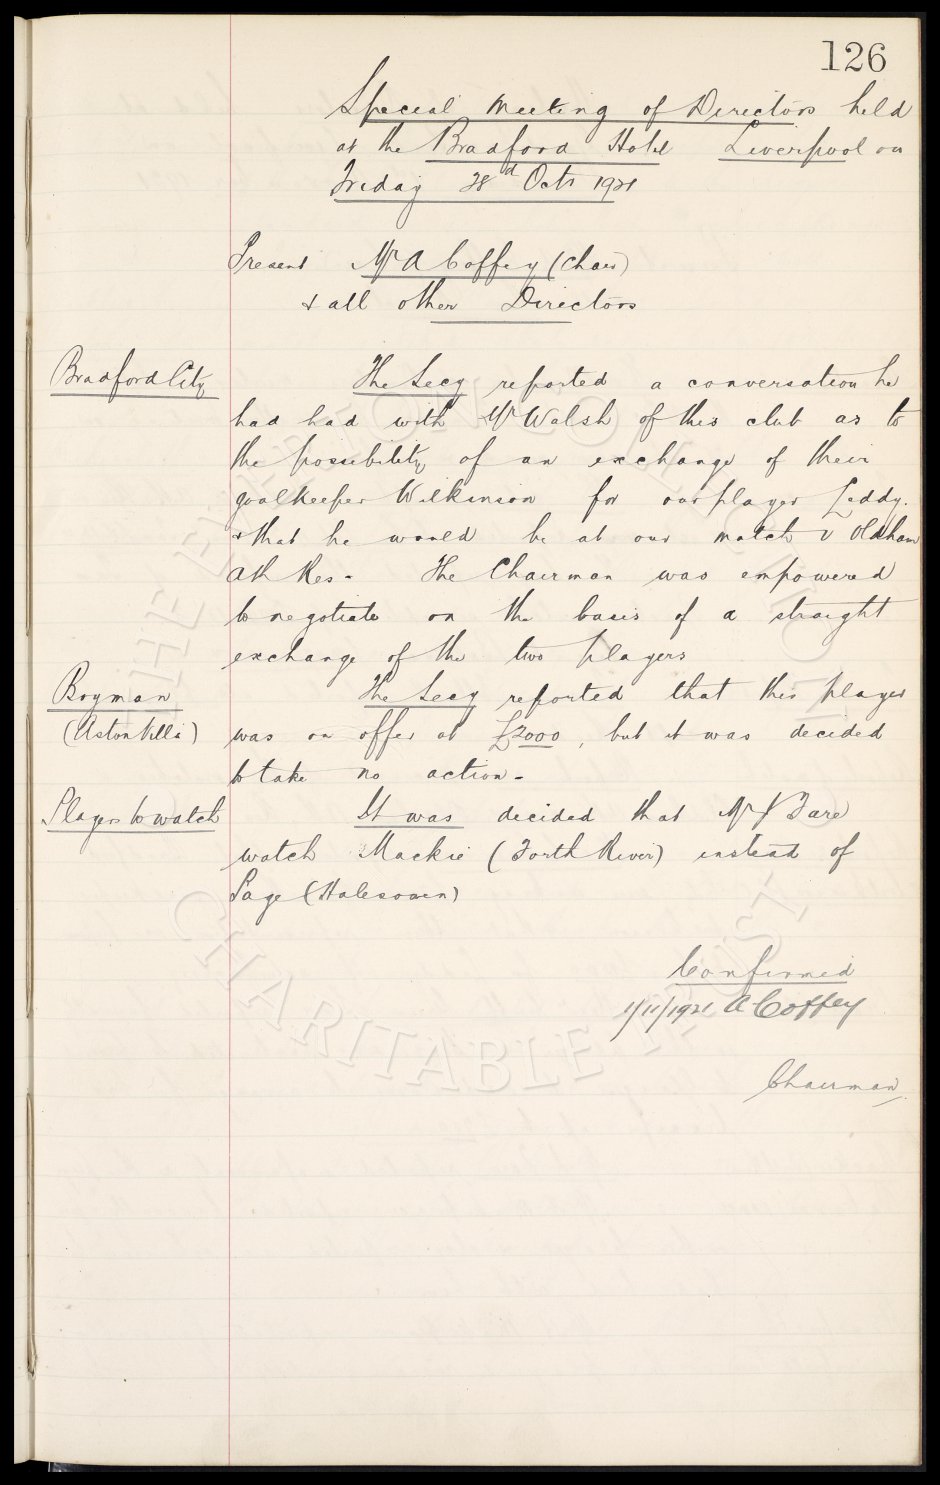 126
Special Meeting of Directors held
at the Bradford Hotel Liverpool on
Friday 28d Octr 1921
Present Mr A Coffey (Chair)
& all other Directors
Bradford City
The Secy reported a conversation he
had had with Mr Walsh of this club as to
the possibility of an exchange of their
goalkeeper Wilkinson for our player Leddy.
& that he would be at our match v Oldham
Ath Res - The Chairman was empowered
to negotiate on the basis of a straight
exchange of the two players
Boyman
(Aston Villa)
The Secy reported that this player
was on offer at £2000, but it was decided
to take no action -
Players to watch
It was decided that Mr Fare
watch Mackie (Forth River) instead of
Page (Halesowen)
Confirmed
1/11/1921 A Coffey
Chairman
THE EVERTON COLLECTION
CHARITABLE TRUST